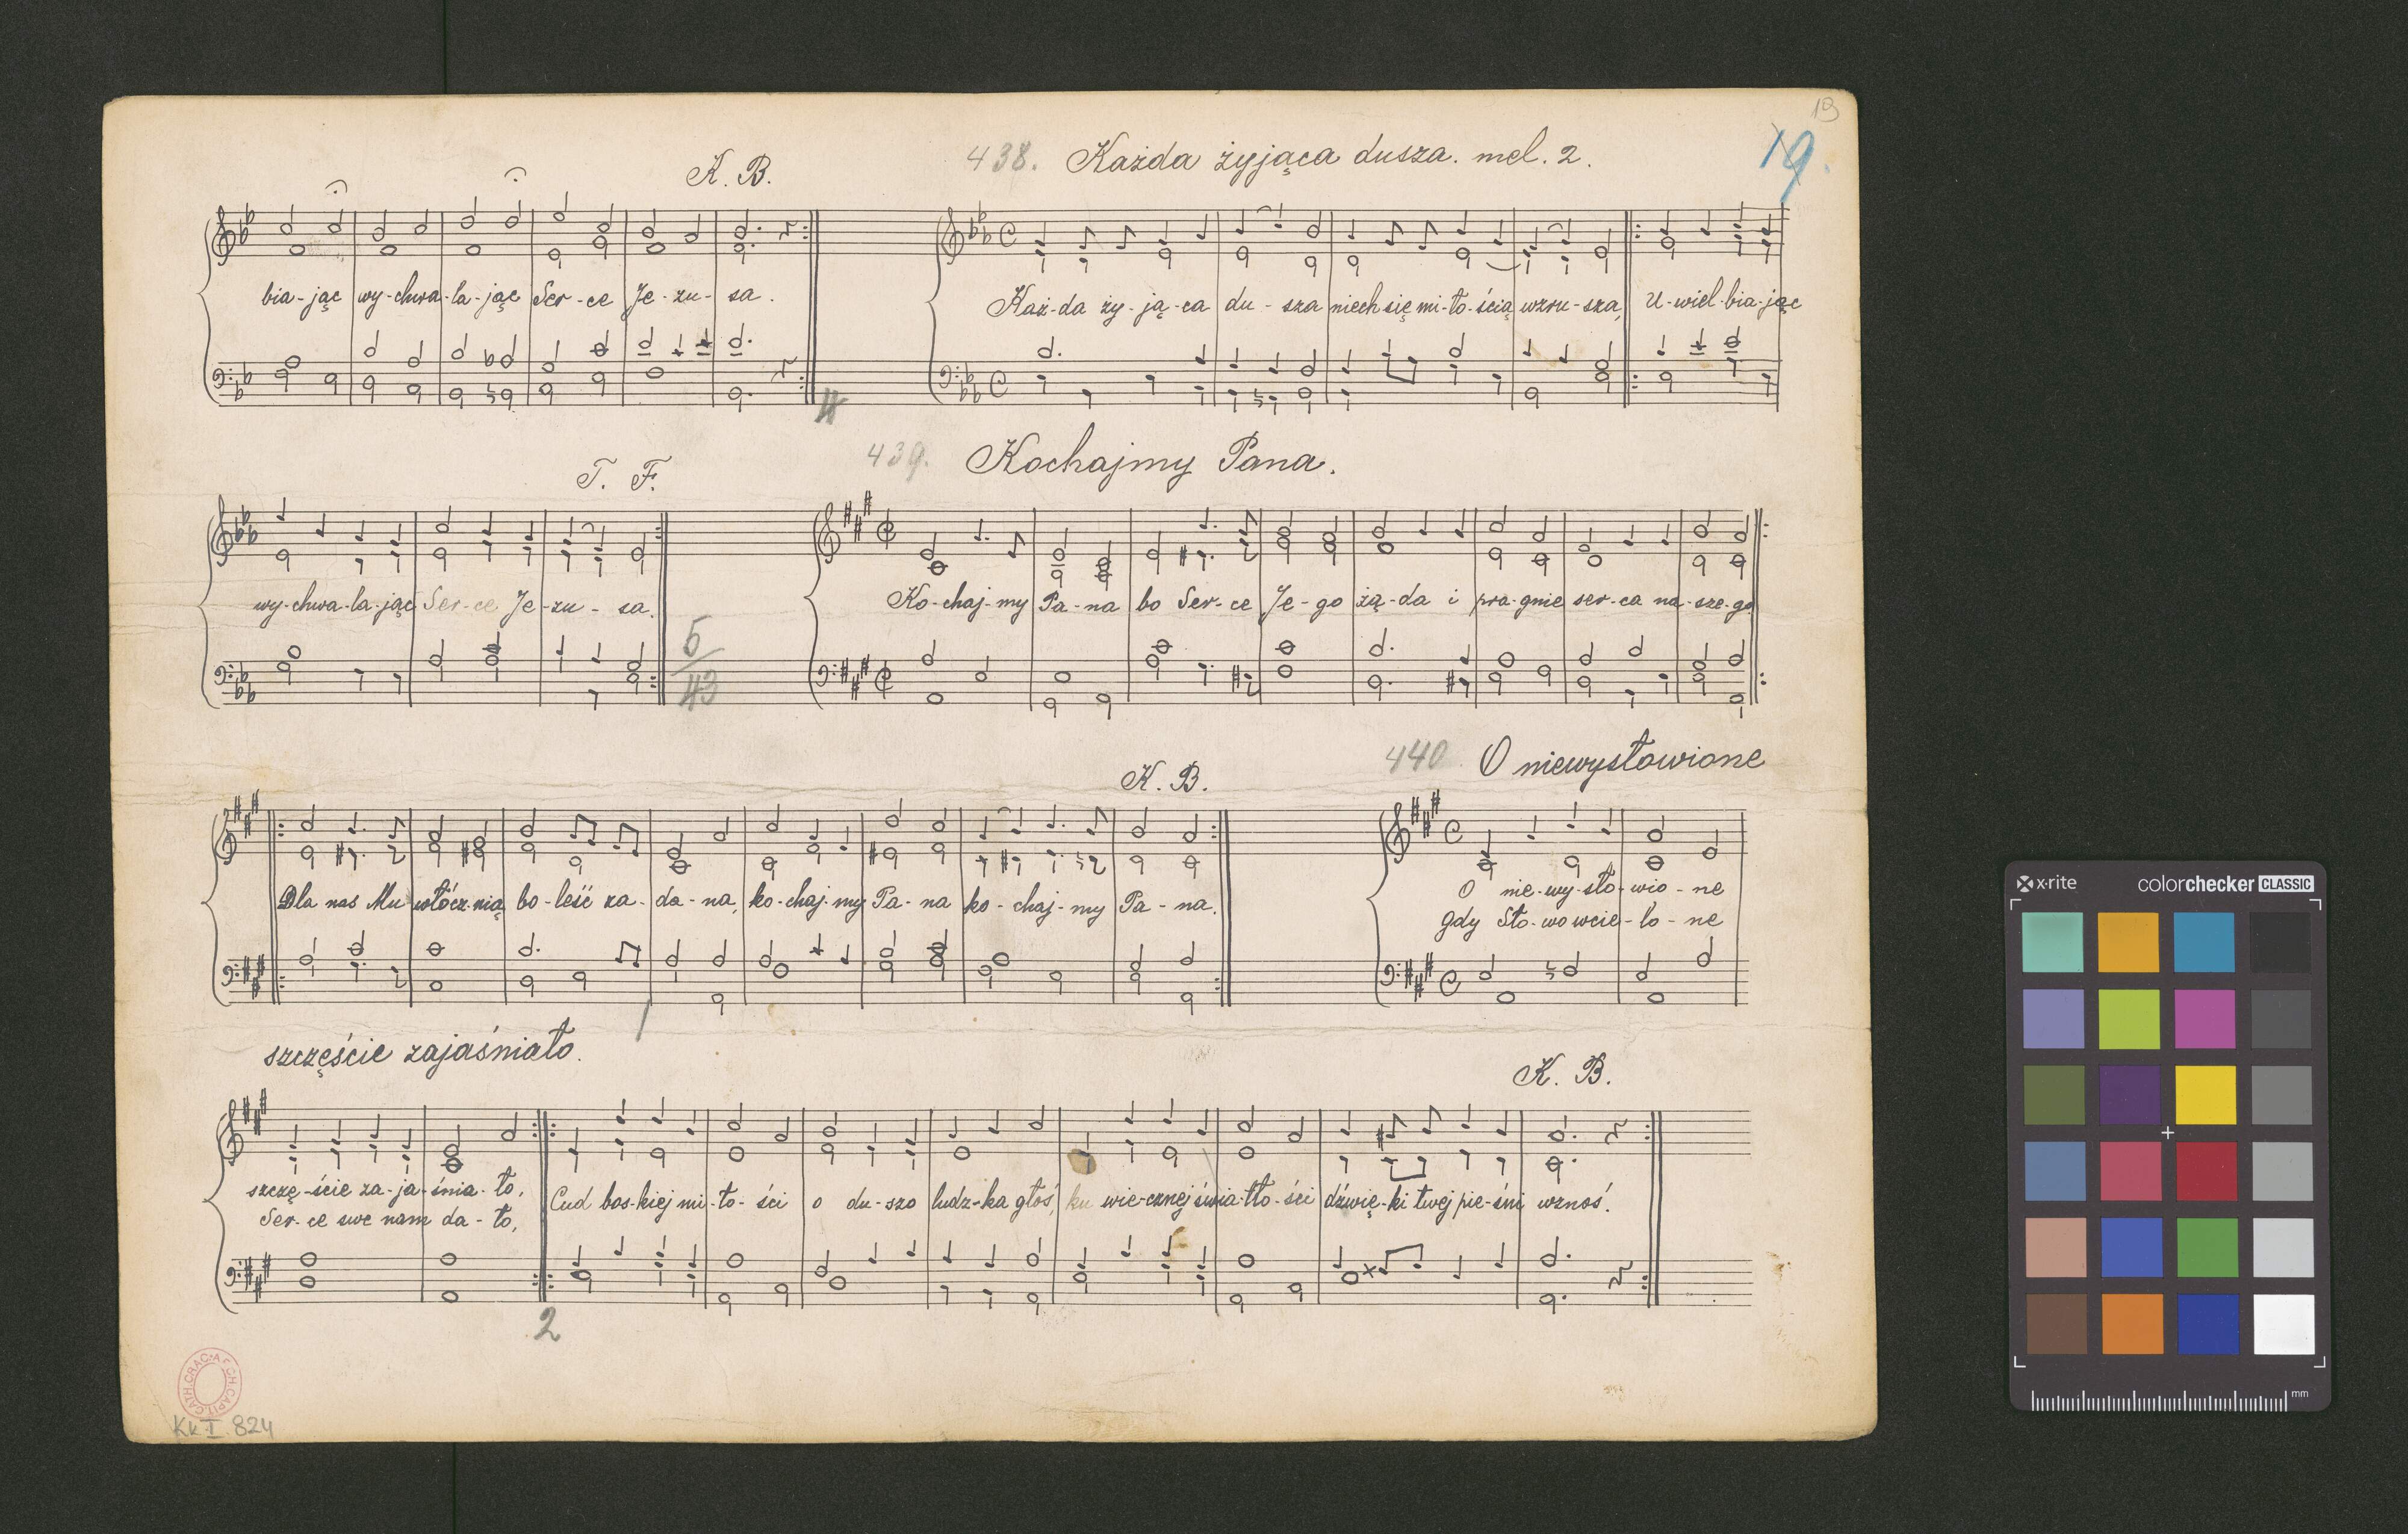 19
19.
K. B.
438. Każda żyjąca dusza. mel. 2.
bia-jąc wy-chwa-la-jąc Ser-ce Je-zu-sa.
Każ-da ży-ją-ca du-sza niech się mi-ło-ścią wzru-sza, U-wiel-bia-jąc
T. F.
439. Kochajmy Pana.
wy-chwa-la-jąc Ser-ce Je-zu-sa.
Ko-chaj-my Pa-na bo Ser-ce Je-go żą-da i pra-gnie ser-ca na-sze-go
5
43
K. B.
440. O niewysłowione
Dla nas Mu włócz-nią bo-leść za-da-na, ko-chaj-my Pa-na ko-chaj-my Pa-na.
O nie-wy-sło-wio-ne
gdy Sło-wo wcie-lo-ne
szczęście zajaśniało.
K. B.
szczę-ście za-ja-śnia-ło,
Ser-ce swe nam da-ło,
Cud bos-kiej mi-ło-ści o du-szo ludz-ka głoś, ku wie-cznej świa-tło-ści dźwię-ki twej pie-śni wznoś.
2
ARCH. CAPIT. CATH. CRAC.
Kk I 824
x-rite colorchecker CLASSIC
mm